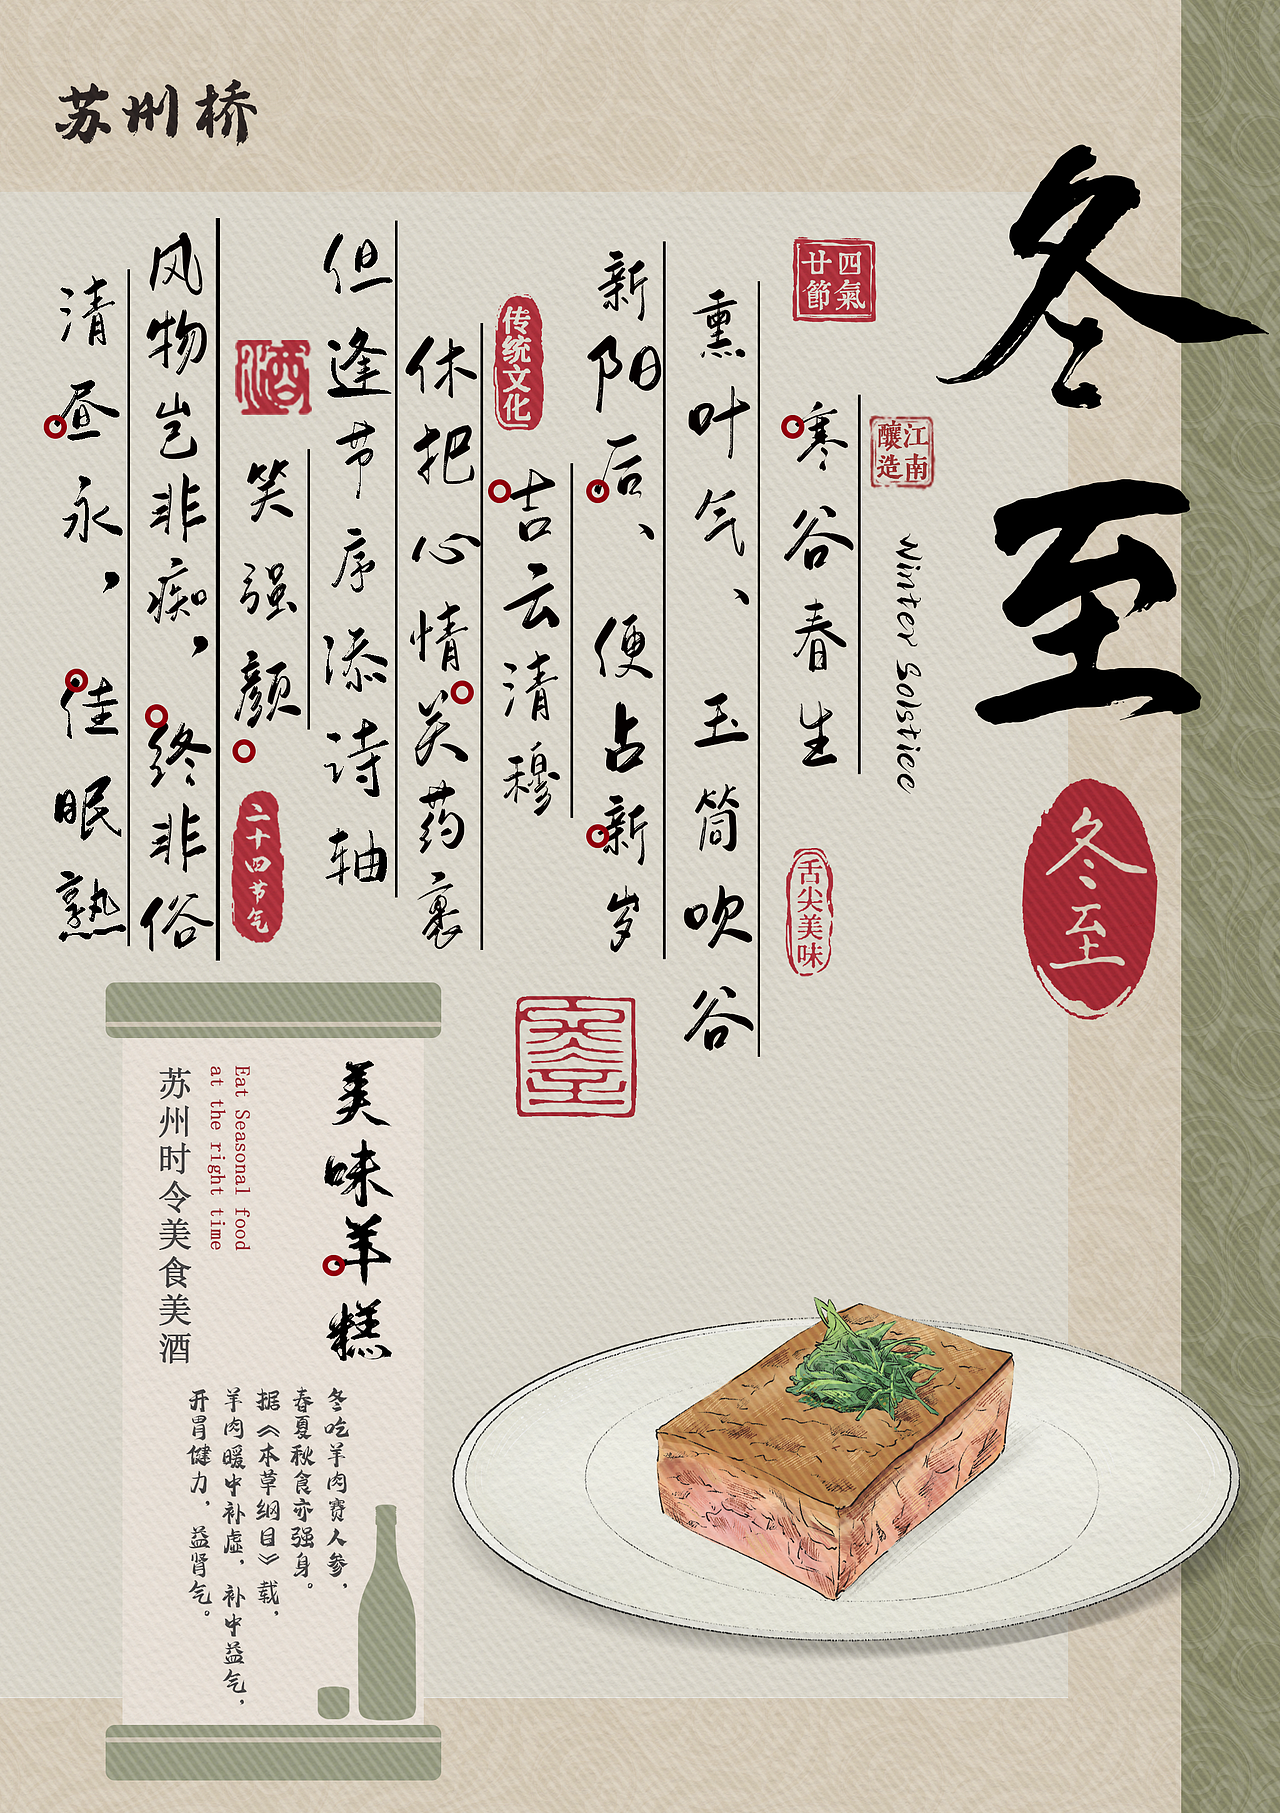 苏州桥
冬至
Winter Solstice
冬至
江南
釀造
四氣
廿節
寒谷春生
舌尖美味
熏叶气、玉筒吹谷
新阳后、便占新岁
吉云清穆
传统文化
休把心情关药裹
但逢节序添诗轴
酒
笑强颜
二十四节气
风物岂非痴，终非俗
清昼永，佳眠熟
冬至
美味羊糕
Eat Seasonal food
at the right time
苏州时令美食美酒
冬吃羊肉赛人参，
春夏秋食亦强身。
据《本草纲目》载，
羊肉暖中补虚，补中益气，
开胃健力，益肾气。